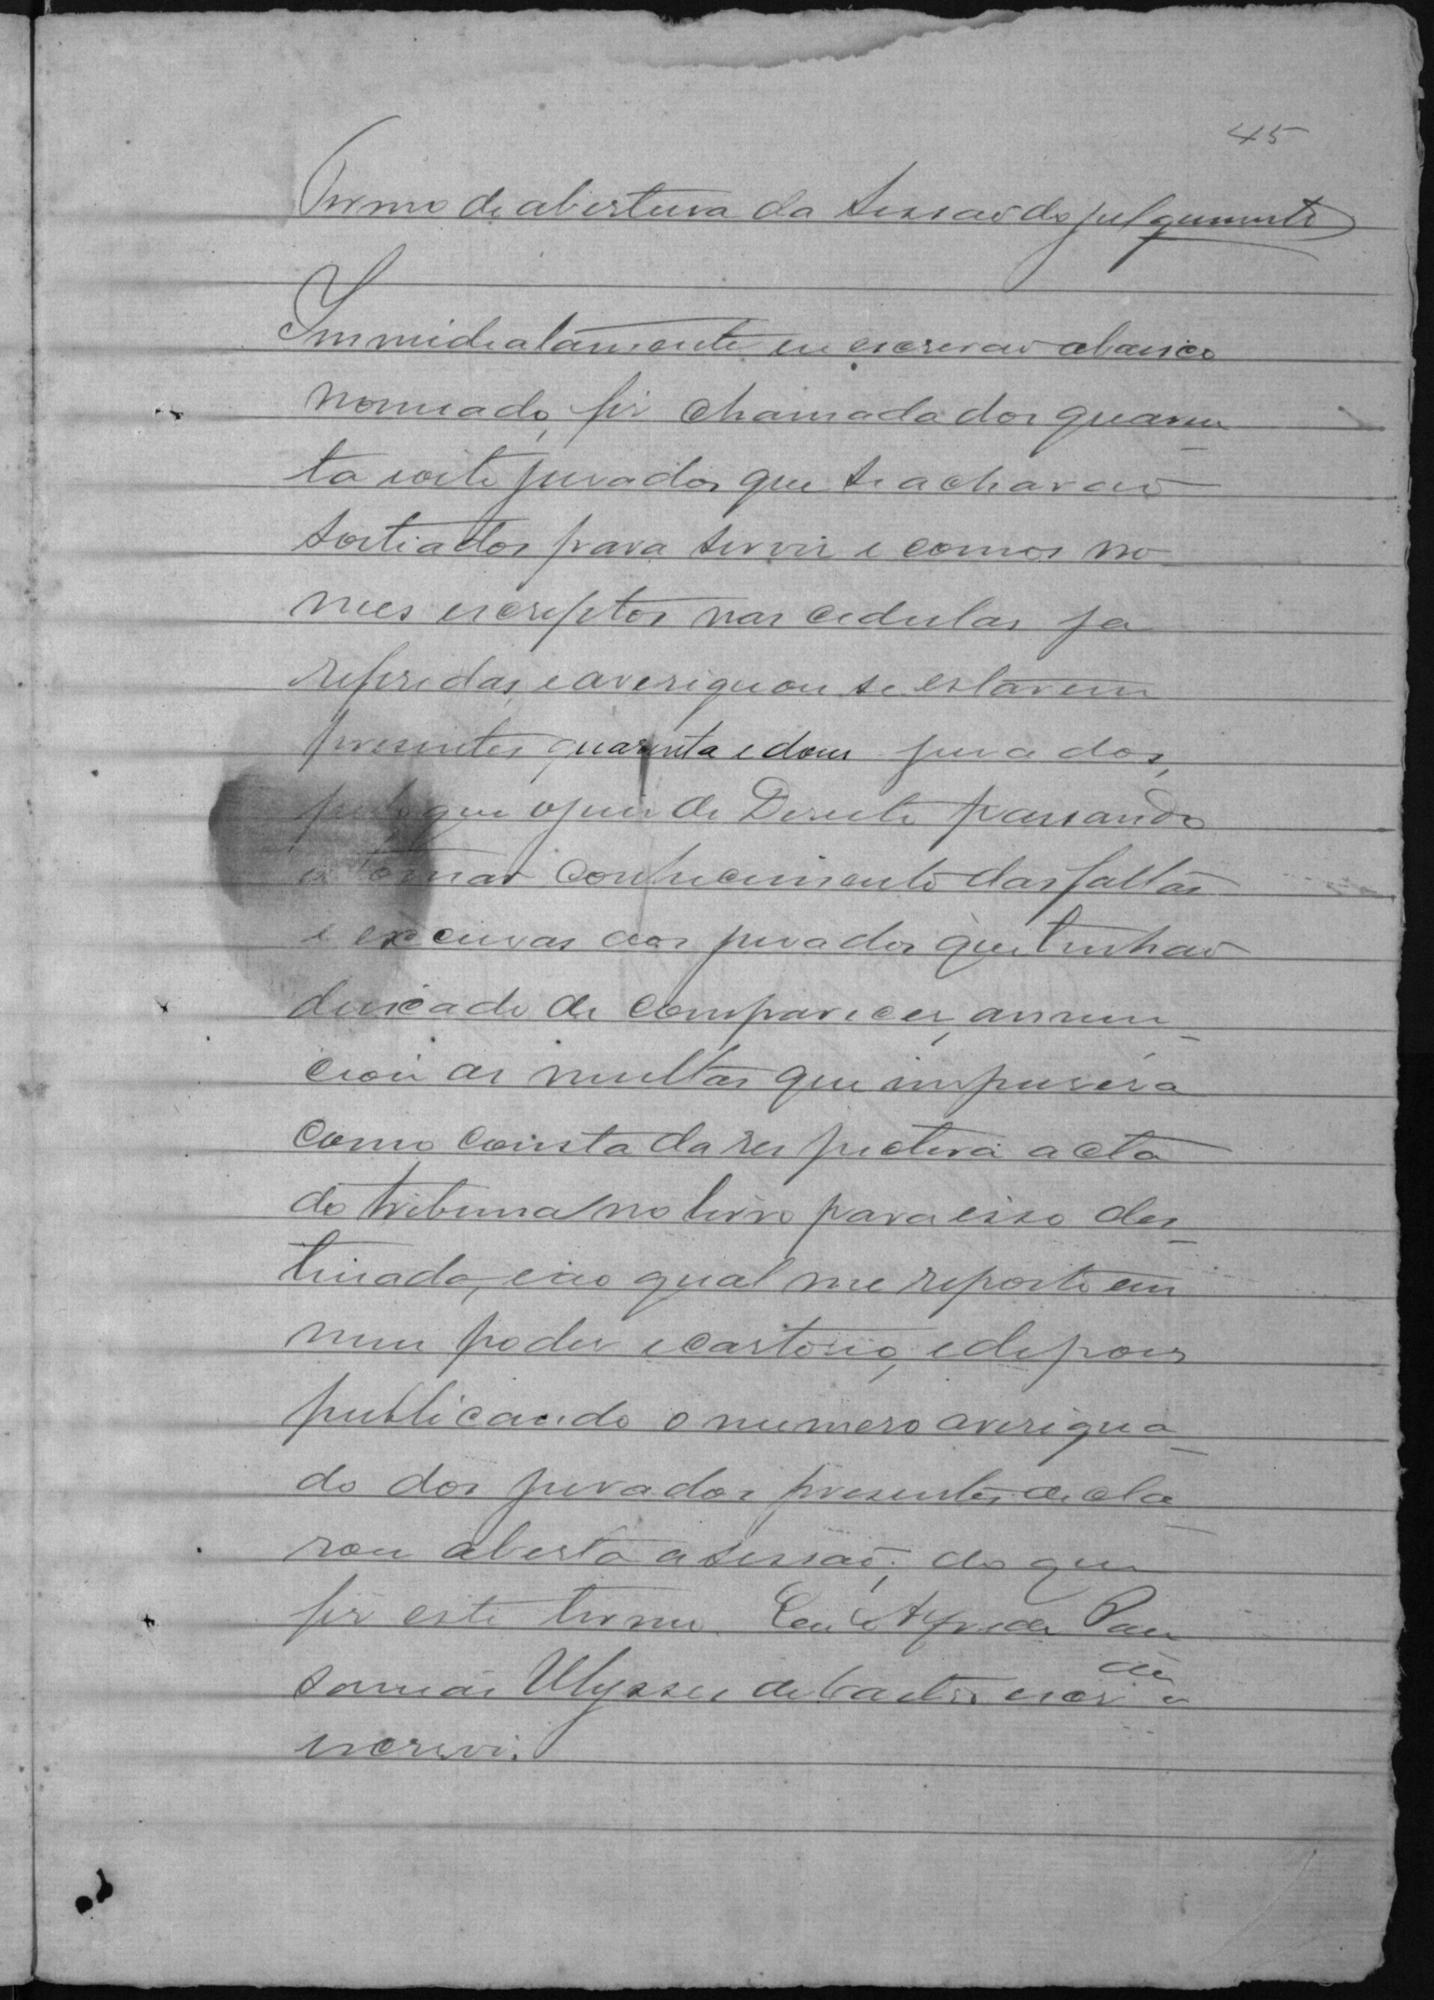 45
Termo de abertura da Sessão do julgamento
Immediatamente eu escrivão abaixo
nomeado, fiz chamada dos quaren-
ta e oito jurados que se achavão
sortiados para servir e com os no-
mes escriptos nas cedulas ja
referidas, e averiguou se estarem
presentes quarenta e dous jurados,
pelo que o juiz de Direito passando
a tomar conhecimento das faltas
e excusas dos jurados que tinhão
deixado de comparecer, annun-
ciou as multas que impusera
como consta da respectiva acta
do tribunal no livro para isso des-
tinado, e ao qual me reporto em
meu poder e cartorio, e depois
publicando o numero averigua-
do dos jurados presentes decla-
rou aberta a sessão; do que
fiz este termo. Eu Alfredo
Ulysses de Castro escrivão
escrevi.